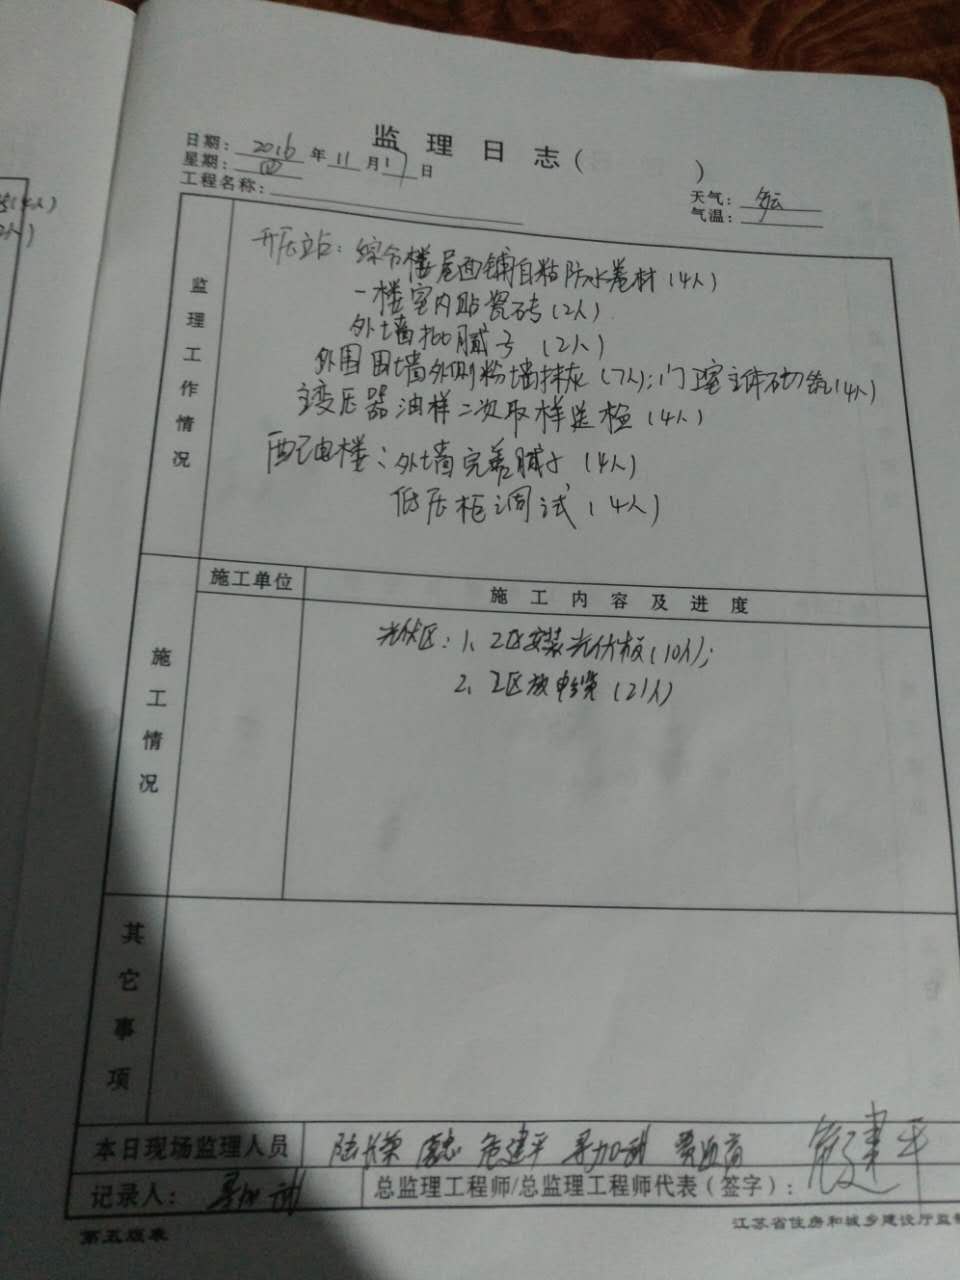 监理日志（ ）
日期：2016年11月17日
星期：四
工程名称：
天气：多云
气温：
监理工作情况
开压站：综合楼屋面铺自粘防水卷材（4人）
一楼室内贴瓷砖（2人）
外墙批腻子（2人）
外围围墙外侧粉墙抹灰（7人）；门卫室主体砌筑（4人）
主变压器油样二次取样送检（4人）
配电楼：外墙完善腻子（4人）
低压柜调试（4人）
施工情况
施工单位 施工内容及进度
光伏区：1、2区安装光伏板（10人）；
2、2区放电缆（21人）
其它事项
本日现场监理人员 危建平
记录人：
总监理工程师/总监理工程师代表（签字）：危建平
第五版表
江苏省住房和城乡建设厅监制
4人）
2人）